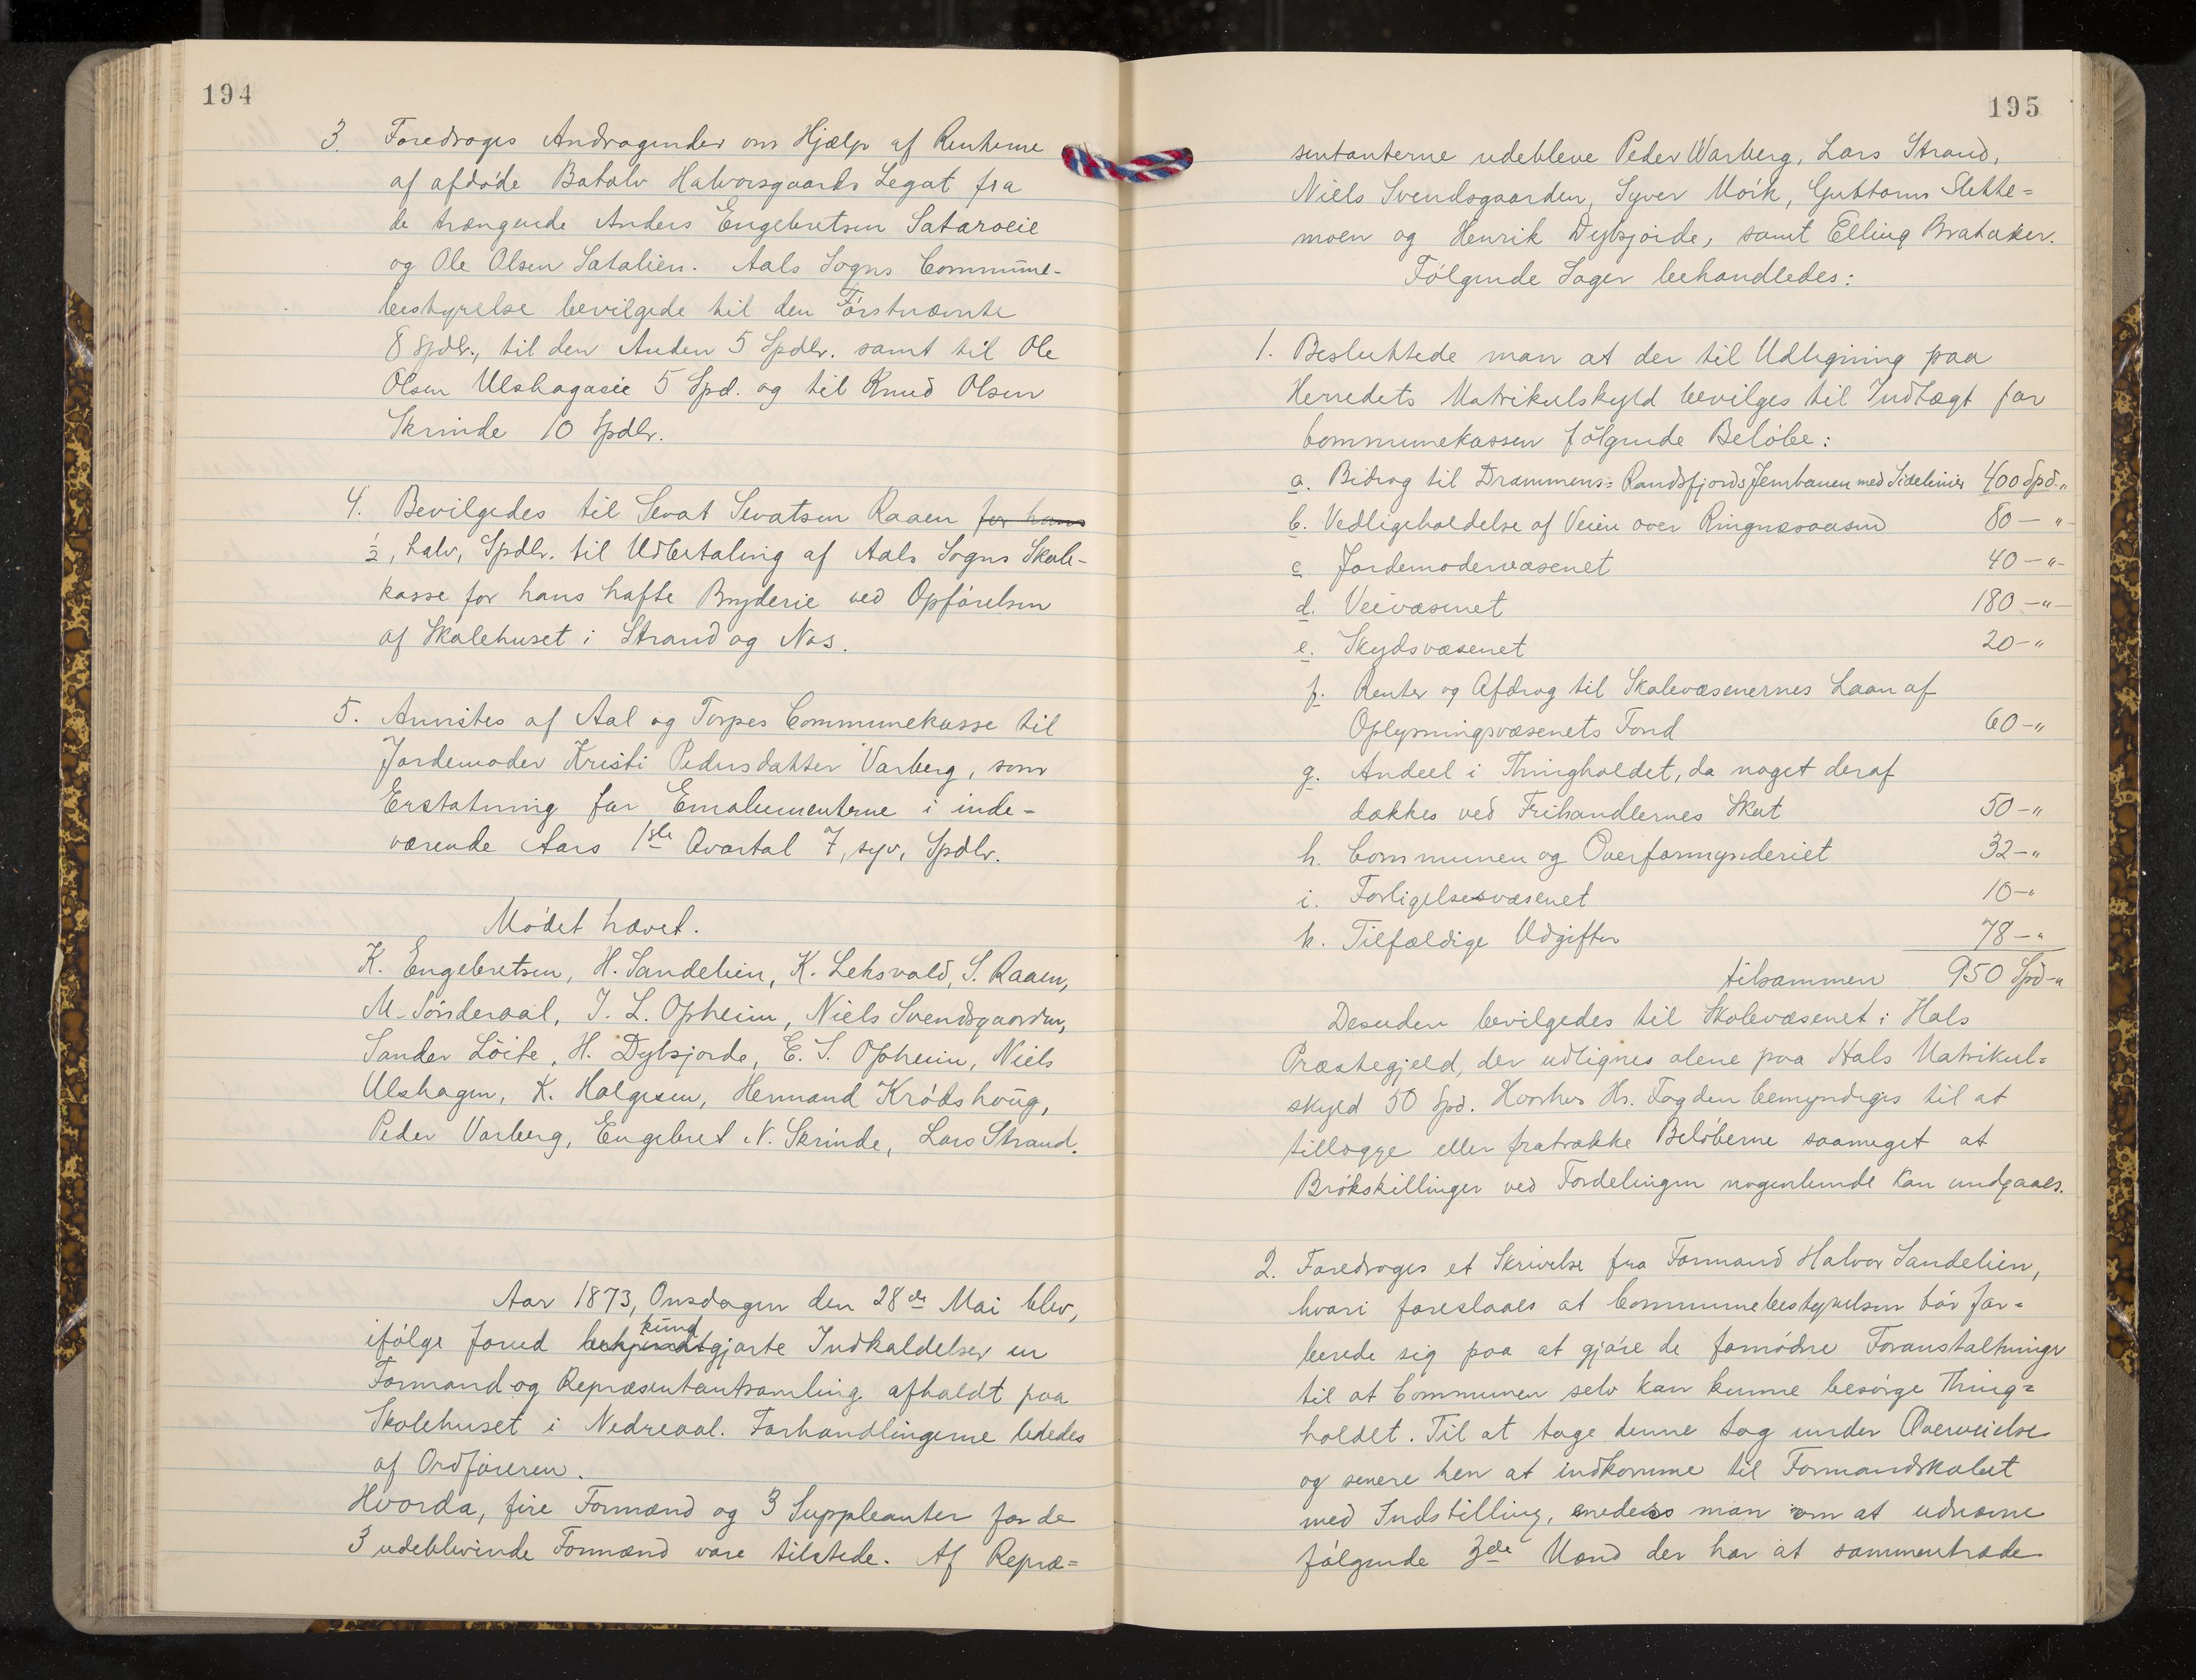 194
3. Foredroges Andragender om Hjælp af Renterne
af afdøde Botolv Halvorsgaards Legat fra
de trængende Anders Engebretsen Sataroeie
og Ole Olsen Satalien. Aals Sogns Commune-
bestyrelse bevilgede til den Førstnævnte
8 Spdlr., til den Anden 5 Spdlr. samt til Ole
Olsen Ulshagaeie 5 Spd. og til Knud Olsen
Skrinde 10 Spdlr.
4. Bevilgedes til Sevat Sevatsen Raaen for hans
½, halv, Spdlr. til Udbetaling af Aals Sogns Skole-
kasse for hans hafte Bryderie ved Opførelsen
af Skolehuset i Strand og Nos.
5. Anvistes af Aal og Torpes Communekasse til
Jordemoder Kristi Pedersdatter Varberg, som
Erstatning for Emolumenterne i inde-
værende Aars 1ste Qvartal 7, syv, Spdlr.
Mødet hævet.
K. Engebretsen, H. Sandelien, K. Leksvold, S. Raaen,
M. Sønderaal, T. L. Opheim, Niels Svendsgaarden,
Sander Løite, H. Dybsjorde, E. S. Opheim, Niels
Ulshagen, K. Holgesen, Hermand Krødshoug,
Peder Varberg, Engebret N. Skrinde, Lars Strand.
Aar 1873, Onsdagen den 28de Mai blev,
kund
ifølge forud bekjendtgjorte Indkaldelser en
Formand og Repræsentantsamling afholdt paa
Skolehuset i Nedreaal. Forhandlingerne lededes
af Ordføreren.
Hvorda, fire Formænd og 3 Suppleanter for de
3 udeblivende Formænd vare tilstede. Af Repræ=
195
sentanterne udebleve Peder Warberg, Lars Strand,
Niels Svendsgaarden, Syver Mørk, Guttorm Slette=
moen og Henrik Dybsjorde, samt Elling Brataker.
Følgende Sager behandledes:
1. Besluttede man at der til Udligning paa
Herredets Matrikulskyld bevilges til Indtægt for
Communekassen følgende Beløbe:
a. Bidrag til Drammens= Randsfjords Jernbanen med Sidelinier 400 Spd.„
b. Vedligeholdelse af Veien over Ringnesaasen 80 — „ -
c Jordemodervæsenet 40 — „ -
d. Veivæsenet 180 — „ —
e. Skydsvæsenet 20 - „
f. Renter og Afdrag til Skolevæsenernes Laan af
Oplysningsvæsenets Fond 60 - „
g. Andeel i Thingholdet, da noget deraf
dækkes ved Frihandlernes Skat 50 - „
h. Communen og Overformynderiet 32 - „
i. Forligelsesvæsenet 10 - „
k. Tilfældige Udgifter 78 - „
tilsammen 950 Spd - „
Desuden bevilgedes til Skolevæsenet i Hols
Præstegjeld, der udlignes alene paa Hols Matrikul=
skyld 50 Spd. Hvorhos Hr. Fogden bemyndiges til at
tillægge eller fratrække Beløberne saameget at
Brøkskillinger ved Fordelingen nogenlunde kan undgaaes.
2. Foredroges et Skrivelse fra Formand Halvor Sandelien,
hvori foreslaaes at Communebestyrelsen bør for=
berede sig paa at gjøre de fornødne Foranstaltninger
til at Communen selv kan kunne besørge Thing=
holdet. Til at tage denne Sag under Overveielse
og senere hen at indkomme til Formandskabet
med Indstilling, enedes man om at udnævne
følgende 3de Mænd der har at sammentræde